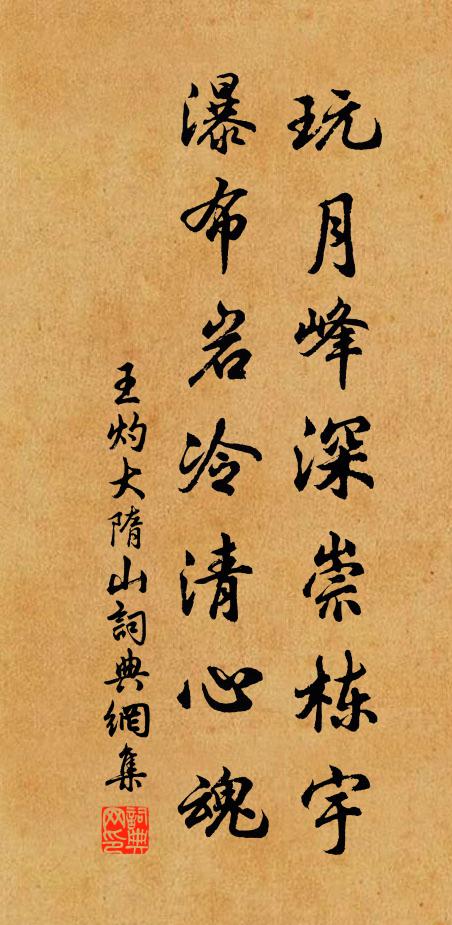 玩月峰深崇栋宇
瀑布岩冷清心魂
王灼大隋山詞典網集
詞典网印